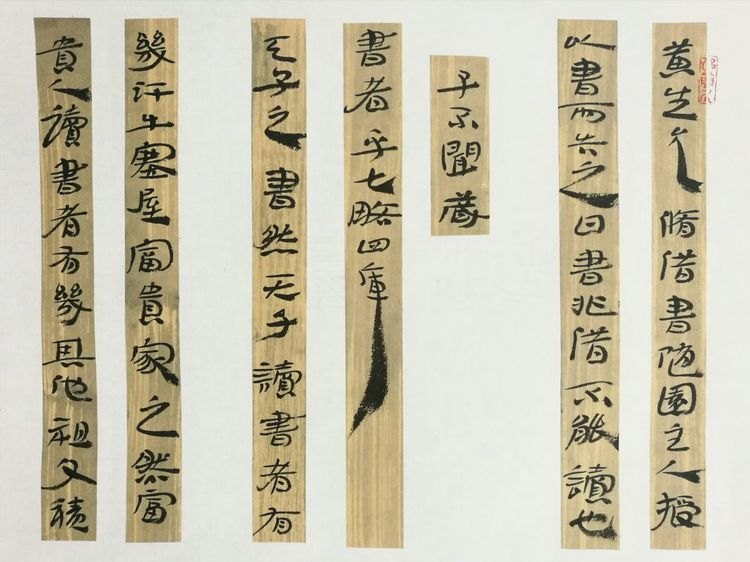 黄生允脩借書随園主人授
以書而告之曰書非借不能讀也
子不聞藏
書者乎七略四庫
天子之書然天子讀書者有
幾汗牛塞屋富貴家之然富
貴人讀書者有幾其他祖父積